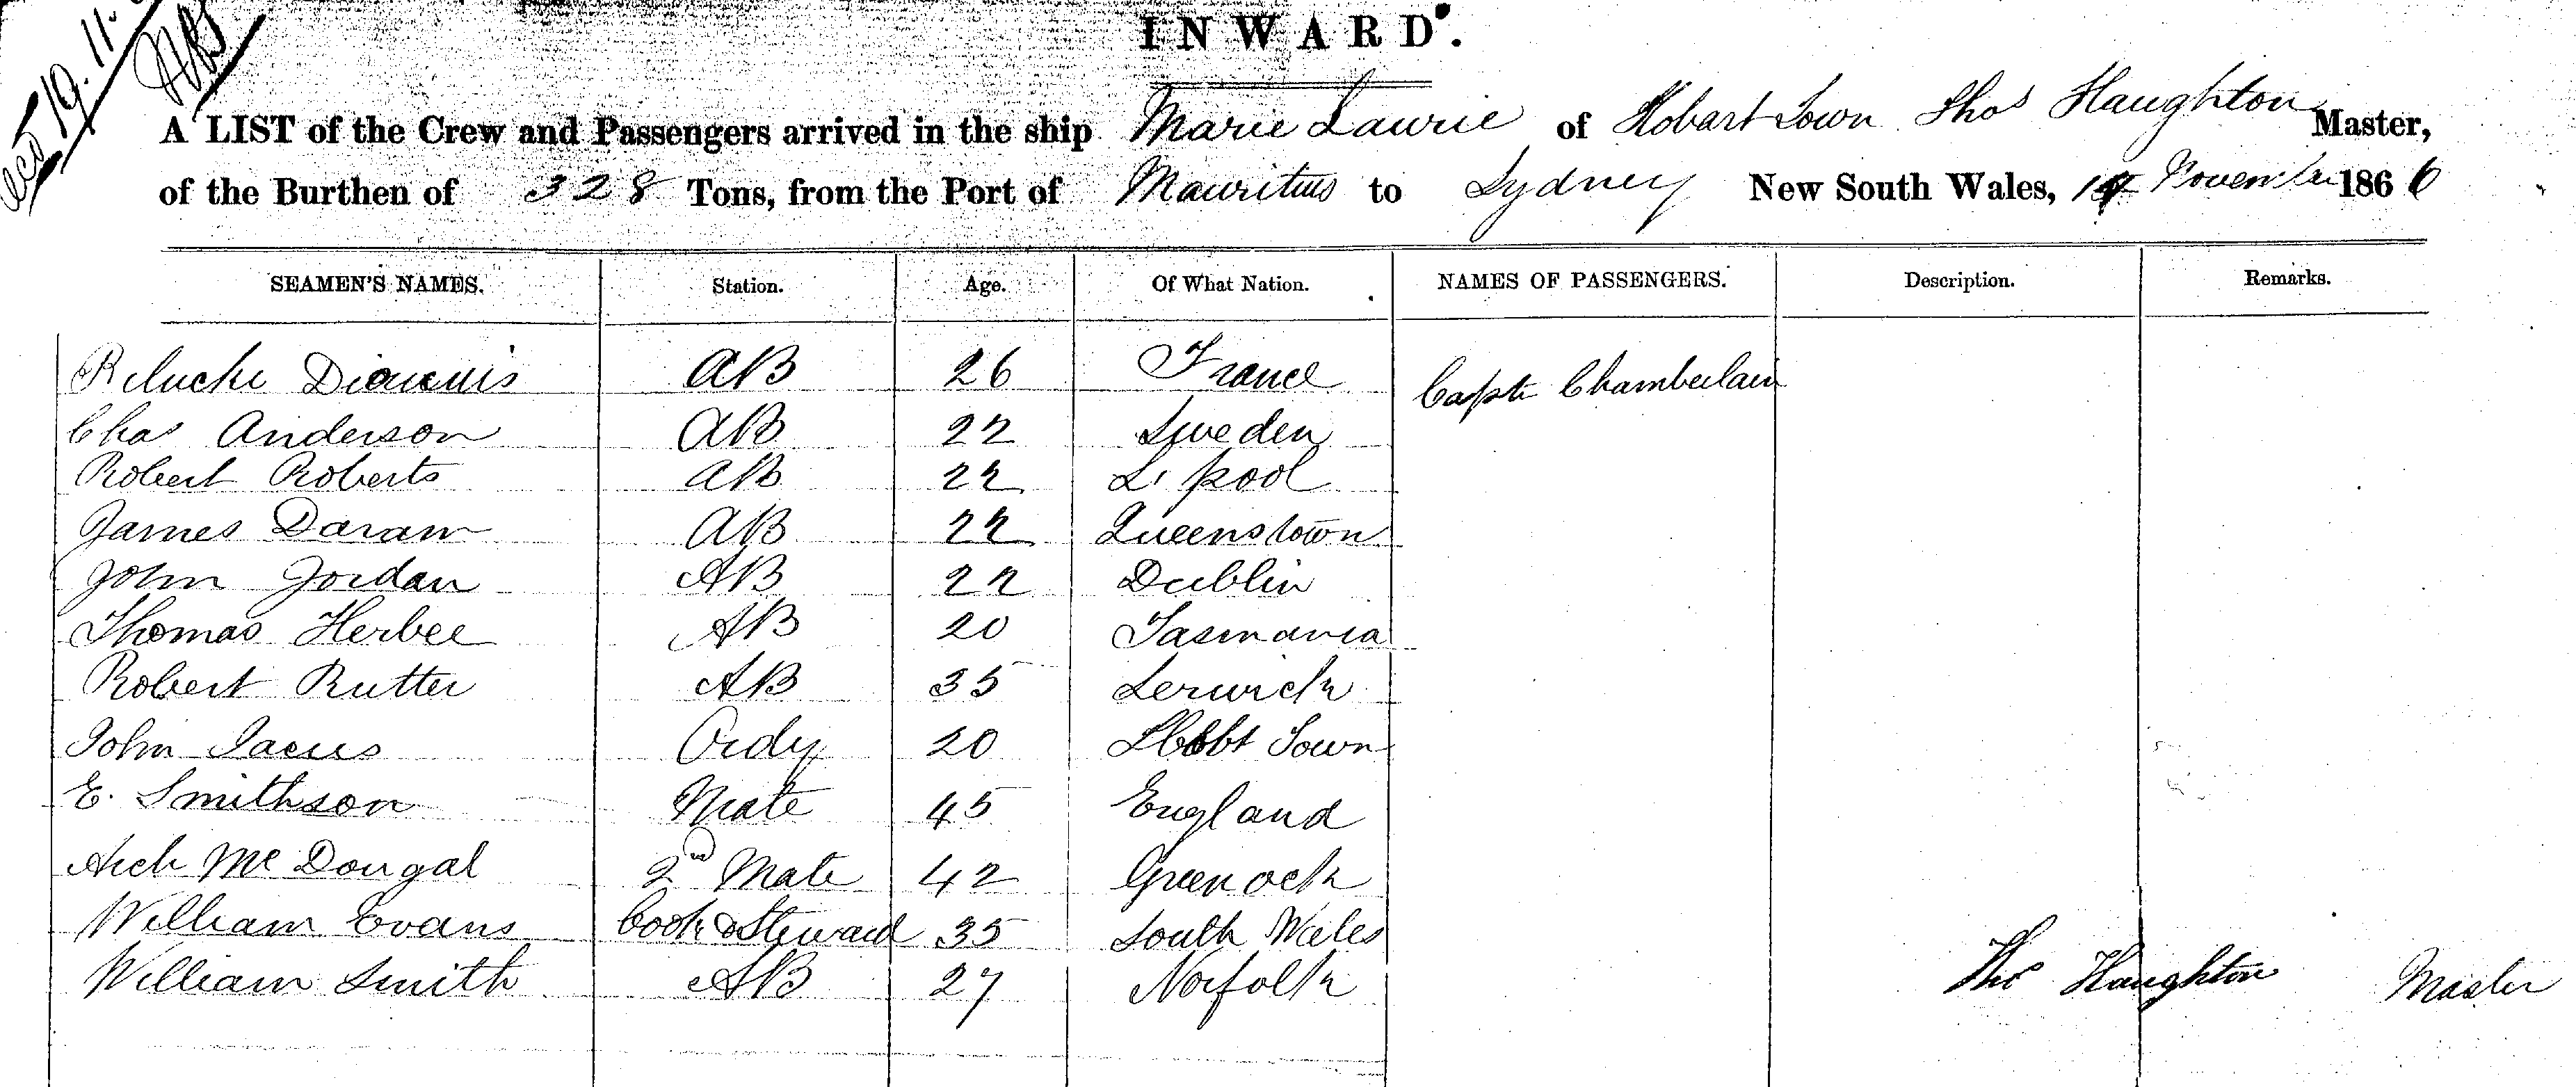 INWARD.
A LIST of the Crew and Passengers arrived in the ship Marie Laurie of Hobart Town Thos Haughton Master,
of the Burthen of 328 Tons, from the Port of Mauritius to Sydney New South Wales, November 1866
SEAMEN'S NAMES. Station. Age. Of What Nation. NAMES OF PASSENGERS. Description. Remarks.
AB 26 France Capt Chamberlain
Chas Anderson AB 22 Sweden
Robert Roberts AB 22 L'pool
James Daram AB 22 Queenstown
John Jordan AB 22 Dublin
Thomas Herbee AB 20 Tasmania
Robert Rutter AB 35 Lerwick
John Ordy 20 Hobt Town
E. Smithson Mate 45 England
Arch McDougal 2nd Mate 42 Greenock
William Evans Cook & Steward 35 South Wales
William Smith AB 27 Norfolk
Thos Haughton Master